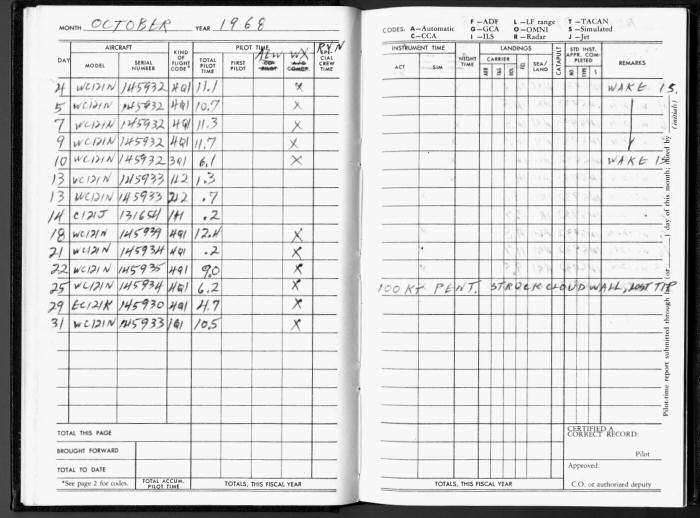 MONTH OCTOBER YEAR 1968
AIRCRAFT KIND OF FLIGHT CODE* PILOT TIME
DAY MODEL SERIAL NUMBER TOTAL PILOT TIME FIRST PILOT WX CIAL CREW TIME
4 WC121N 145932 4Q1 11.1 X
5 WC121N 145932 4Q1 10.7 X
7 WC121N 145932 4Q1 11.3 X
9 WC121N 145932 4Q1 11.7 X
10 WC121N 145932 3Q1 6.1 X
13 WC121N 145933 1.3
13 WC121N 145933 .7
14 C121J 131654 .2
18 WC121N 145939 4Q1 12.4 X
21 WC121N 145934 4Q1 .2 X
22 WC121N 145935 4Q1 9.0 X
25 WC121N 145934 4Q1 6.2 X
29 EC121K 145930 4Q1 4.7 X
31 WC121N 145933 1Q1 10.5 X
TOTAL THIS PAGE
BROUGHT FORWARD
TOTAL TO DATE
*See page 2 for codes. TOTAL ACCUM. PILOT TIME TOTALS, THIS FISCAL YEAR
CODES: A—Automatic F—ADF L—LF range T—TACAN
C—CCA G—GCA O—OMNI S—Simulated
I—ILS R—Radar J—Jet
INSTRUMENT TIME NIGHT TIME LANDINGS CATAPULT STD INST. APPR. COMPLETED REMARKS
ACT SIM CARRIER SEA/LAND NO TYPE
WAKE IS.
WAKE IS
100 KT PENT. STRUCK CLOUD WALL, LOST TIP
Pilot-time report submitted through 1st (or ) day of this month; noted by (initials)
CERTIFIED A CORRECT RECORD:
Pilot
Approved:
C.O. or authorized deputy
TOTALS, THIS FISCAL YEAR